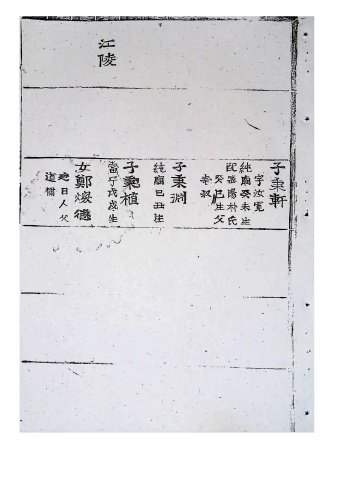 子秉軒
字汝寬
純廟癸未生
配密陽朴氏
癸巳生父
子秉淵
純廟己丑生
子秉植
當宁戊戌生
女鄭煥德
延日人父
道
江陵